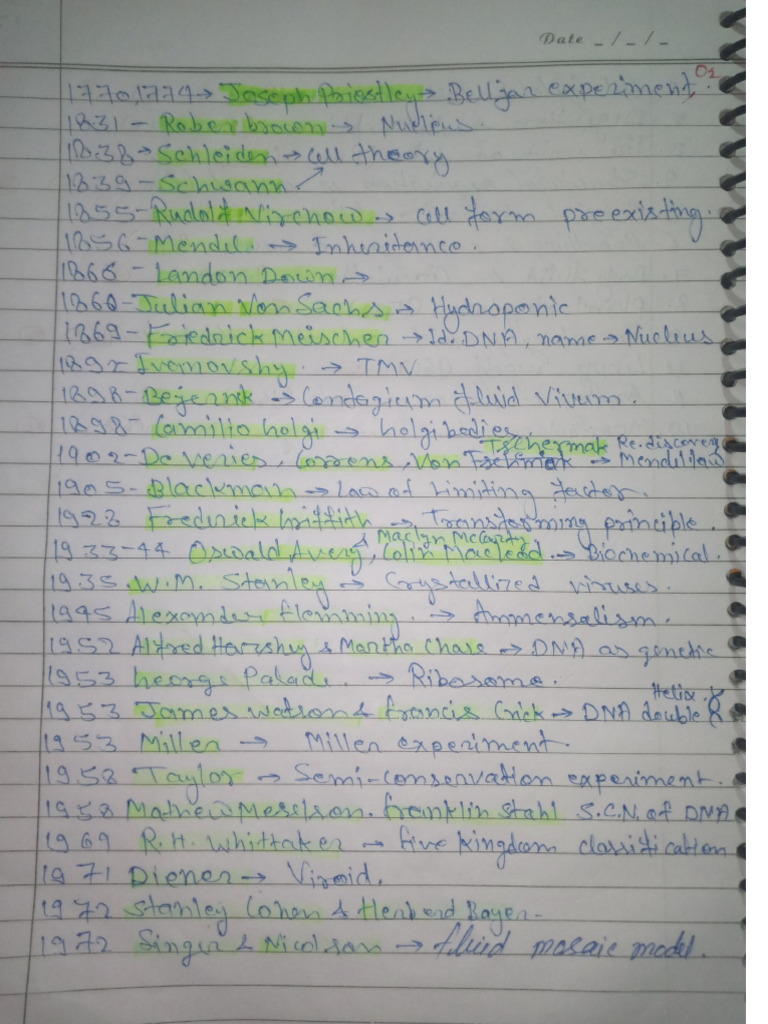 Date _ / _ / _
01
1770,1774→ Joseph Priestley→ Belljar experiment.
1831 - Rober brown → Nucleus.
1838→ Schleiden → cell theory
1839 - Schwann
1855- Rudolf Virchow → cell form preexisting.
1856- Mendel → Inheritance.
1866 - Landon Down →
1860- Julian Von Sachs → Hydroponic
1869- Friedrick Meischer → Id. DNA, name → Nucleus
1892 Ivanovshy. → TMV
1898- Bejernk → Contagium fluid Vivum.
1898- Camilio Golgi → Golgi bodies.
Tschermak Re.discovery
1902- De Veries, Correns, Von → Mendel law
1905- Blackman → Law of Limiting factor.
1928 Frederick Griffith → Transforming principle.
& Maclyn McCarty
1933-44 Oswald Avery, Colin Macleod → Biochemical.
1935 W.M. Stanley → Crystallized viruses.
1945 Alexander flemming. → Ammensalism.
1952 Alfred Harshey & Martha Chase → DNA as genetic
1953 George Palade. → Ribosome.
Helix
1953 James Watson & francis Crick → DNA double
1953 Miller → Miller experiment.
1958 Taylor → Semi-conservation experiment.
1958 Mathew Messlson. franklin Stahl S.C.N. of DNA
1969 R.H. Whittaker → five kingdom classification
1971 Diener → Viroid.
1972 Stanley Cohen & Herberd Boyer-
1972 Singer & Nicolson → fluid mosaic model.